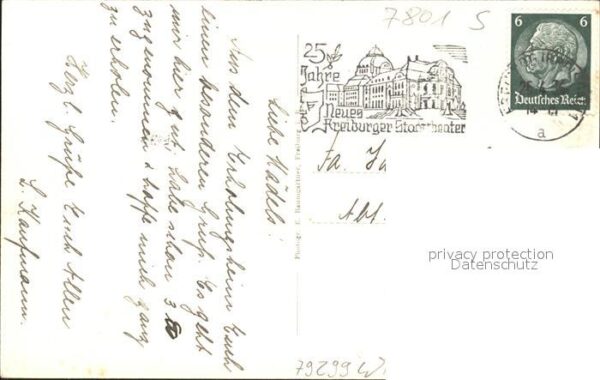 7801 S
25
Jahre
Neues
Freiburger Stadttheater
6 6
Deutsches Reich
a
Liebe Mädels!
Aus dem Erholungsheim Euch
einen besonderen Gruß. Es geht
mir hier gut, habe schon 3 ℔
zugenommen & hoffe mich ganz
zu erholen.
Herzl. Grüße Euch Allen
L. Kaufmann.
Fa.
Abt.
privacy protection
Datenschutz
79299